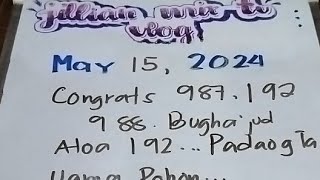 jillian mix tv
vlog
May 15, 2024
Congrats 987.192
988. Bugha jud
Atoa 192... Padaog ta
Hama Pohon...